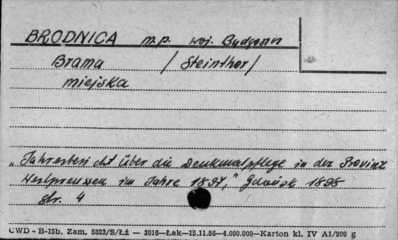 BRODNICA m.p. woj. Bydgoszcz
Brama / Steinthor/
miejska
"Jahresbericht über die Denkmalpflege in der Provinz
Westpreussen im Jahre 1897," Gdańsk 1898
str. 4
CWD - B-15b. Zam. 5823/S/Łż — 3016—Łak—15.11.56—4.000.000—Karton kl. IV A1/200 g